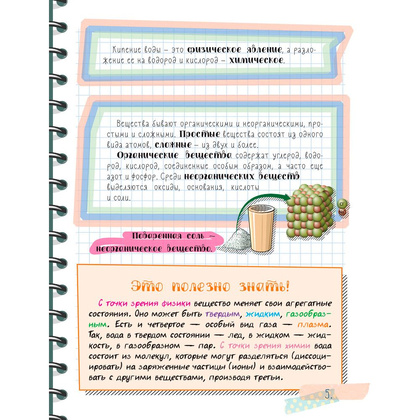 Кипение воды – это физическое явление, а разло-
жение ее на водород и кислород – химическое.
Вещества бывают органическими и неорганическими, про-
стыми и сложными. Простые вещества состоят из одного
вида атомов, сложные – из двух и более.
Органические вещества содержат углерод, водо-
род, кислород, соединенные особым образом, а часто еще
азот и фосфор. Среди неорганических веществ
выделяются оксиды, основания, кислоты
и соли.
Поваренная соль –
неорганическое вещество.
Это полезно знать!
С точки зрения физики вещество меняет свои агрегатные
состояния. Оно может быть твердым, жидким, газообраз-
ным. Есть и четвертое — особый вид газа — плазма.
Так, вода в твердом состоянии — лед, в жидком — жид-
кость, в газообразном — пар. С точки зрения химии вода
состоит из молекул, которые могут разделяться (диссоци-
ировать) на заряженные частицы (ионы) и взаимодейство-
вать с другими веществами, производя третьи.
5